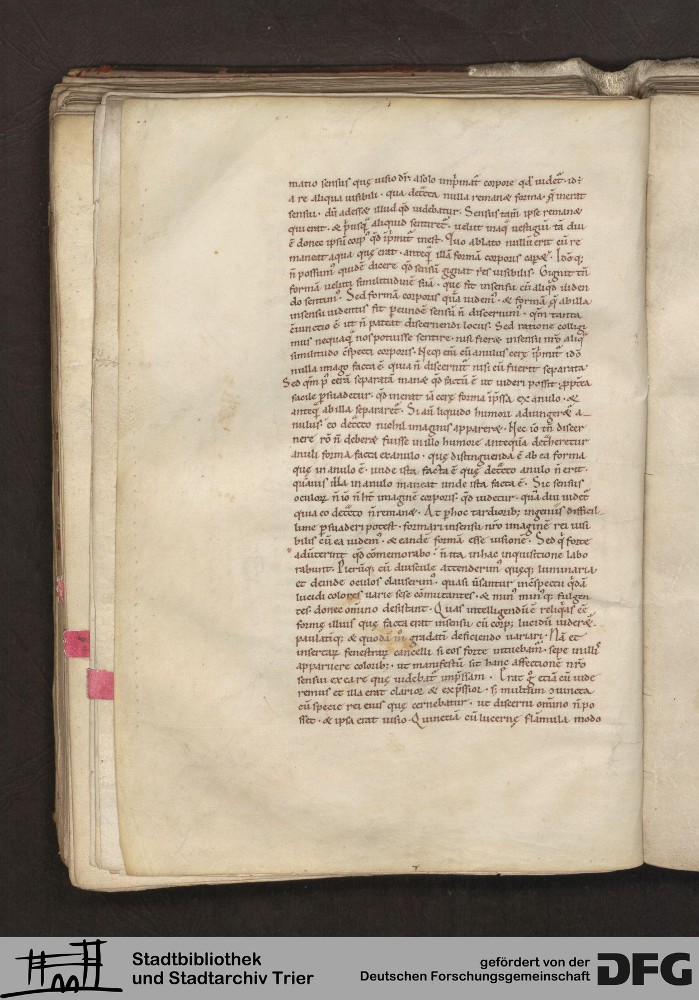 matio sensus quę uisio dr̄ a solo imp̄mat̄ corpore qd̄ uidet̄ · id ē
a re aliqua uisibili · qua detcta nulla remanet forma · q̄ inerat
sensui · dū adesset illud qd̄ uidebatur · Sensus tam̄ ipse remanet
qui erat · & p̄usq̄ aliquid sentiret̄ · uelut in aq̄ uestigiū tā diu
ē donec ipsū corp᷒ qd̄ ip̄mit̄ inest · Quo ablato nullū erit cū re
maneat aqua quę erat · anteq̄ illā formā corporis caperet · Idōq;
n̄ possum᷒ quidē dicere qd̄ sensū gignat res uisibilis · Gignit tn̄
formā ueluti similitudinē suā · que fit in sensu cū aliqd̄ uiden
do sentim᷒ · Sed formā corporis quā uidem᷒ · & formā q̄ ab illa
in sensu uidentis fit p̄ eundē sensū n̄ discernim᷒ · qm̄ tanta
ꝯiunctio ē ut n̄ pateat discernendi locus · Sed ratione colligi
mus nequaq̄ nos potuisse sentire · nisi fieret in sensu nr̄o aliq̄
similitudo ꝯspecti corporis · Neq; eni cū anulus cerę ip̄mit̄ idō
nulla imago facta ē quia n̄ discernit̄ nisi cū fuerit separata
Sed qm̄ p᷒ cerā separatā manet qd̄ factū ē ut uideri possit · ꝓpt̄ea
facile p̄suadetur · qd̄ inerat iā cerę forma ip̄ssa ex anulo · &
anteq̄ ab illa separaret̄ · Si aū liquido humori adiungeret̄ a
nulus · eo detcto nichil imaginis appareret · Nec iō tn̄ discer
nere rō n̄ deberet fuisse in illo humore antequā det̄heretur
anuli formā factā ex anulo · quę distinguenda ē ab ea forma
quę in anulo ē · unde ista facta ē quę detcto anulo n̄ erit ·
quāuis illa in anulo maneat unde ista facta ē · Sic sensus
oculorꝝ n̄ iō n̄ ht̄ imaginē corporis · qd̄ uidetur · quā diu uidet̄
quia eo detcto n̄ remanet · Ac p̄ hoc tardiorib; ingeniis difficil
lime p̄suaderi potest · formari in sensu nr̄o imaginē rei uisi
bilis cū ea uidem᷒ · & eandē formā esse uisionē · Sed q̄ forte
aduerterint qd̄ cōmemorabo · n̄ ita in hac inquisitione labo
rabunt · Plerūq; cū diuscule attenderim᷒ quęq; luminaria
et deinde oculos clauserim᷒ · quasi ūsantur in ꝯspectu qdā
lucidi colores uarie sese cōmutantes · & min᷒ min᷒q; fulgen
tes · donec omnino desistant · Quas intelligendū ē reliqias eē
formę illius quę facta erat in sensu cū corp᷒ lucidū uideret̄
paulatīq; & quodā m̊ gradatī deficiendo uariari · Nā et
insertarꝝ fenestrarꝝ cancelli si eos forte intuebam᷒ · sepe in illis
apparuere colorib; · ut manifestū sit hanc affectionē nr̄o
sensui ex ea re quę uidebat̄ imp̄ssam · Erat g̊ etiā cū uide
remus et illa erat clarior & exp̄ssior · s; multum ꝯiuncta
cū specie rei eius quę cernebatur · ut discerni omīno n̄ po
sset · & ipsa erat uisio · Quin etiā cū lucernę flāmula modo
Stadtbibliothek
und Stadtarchiv Trier
gefördert von der
Deutschen Forschungsgemeinschaft
DFG